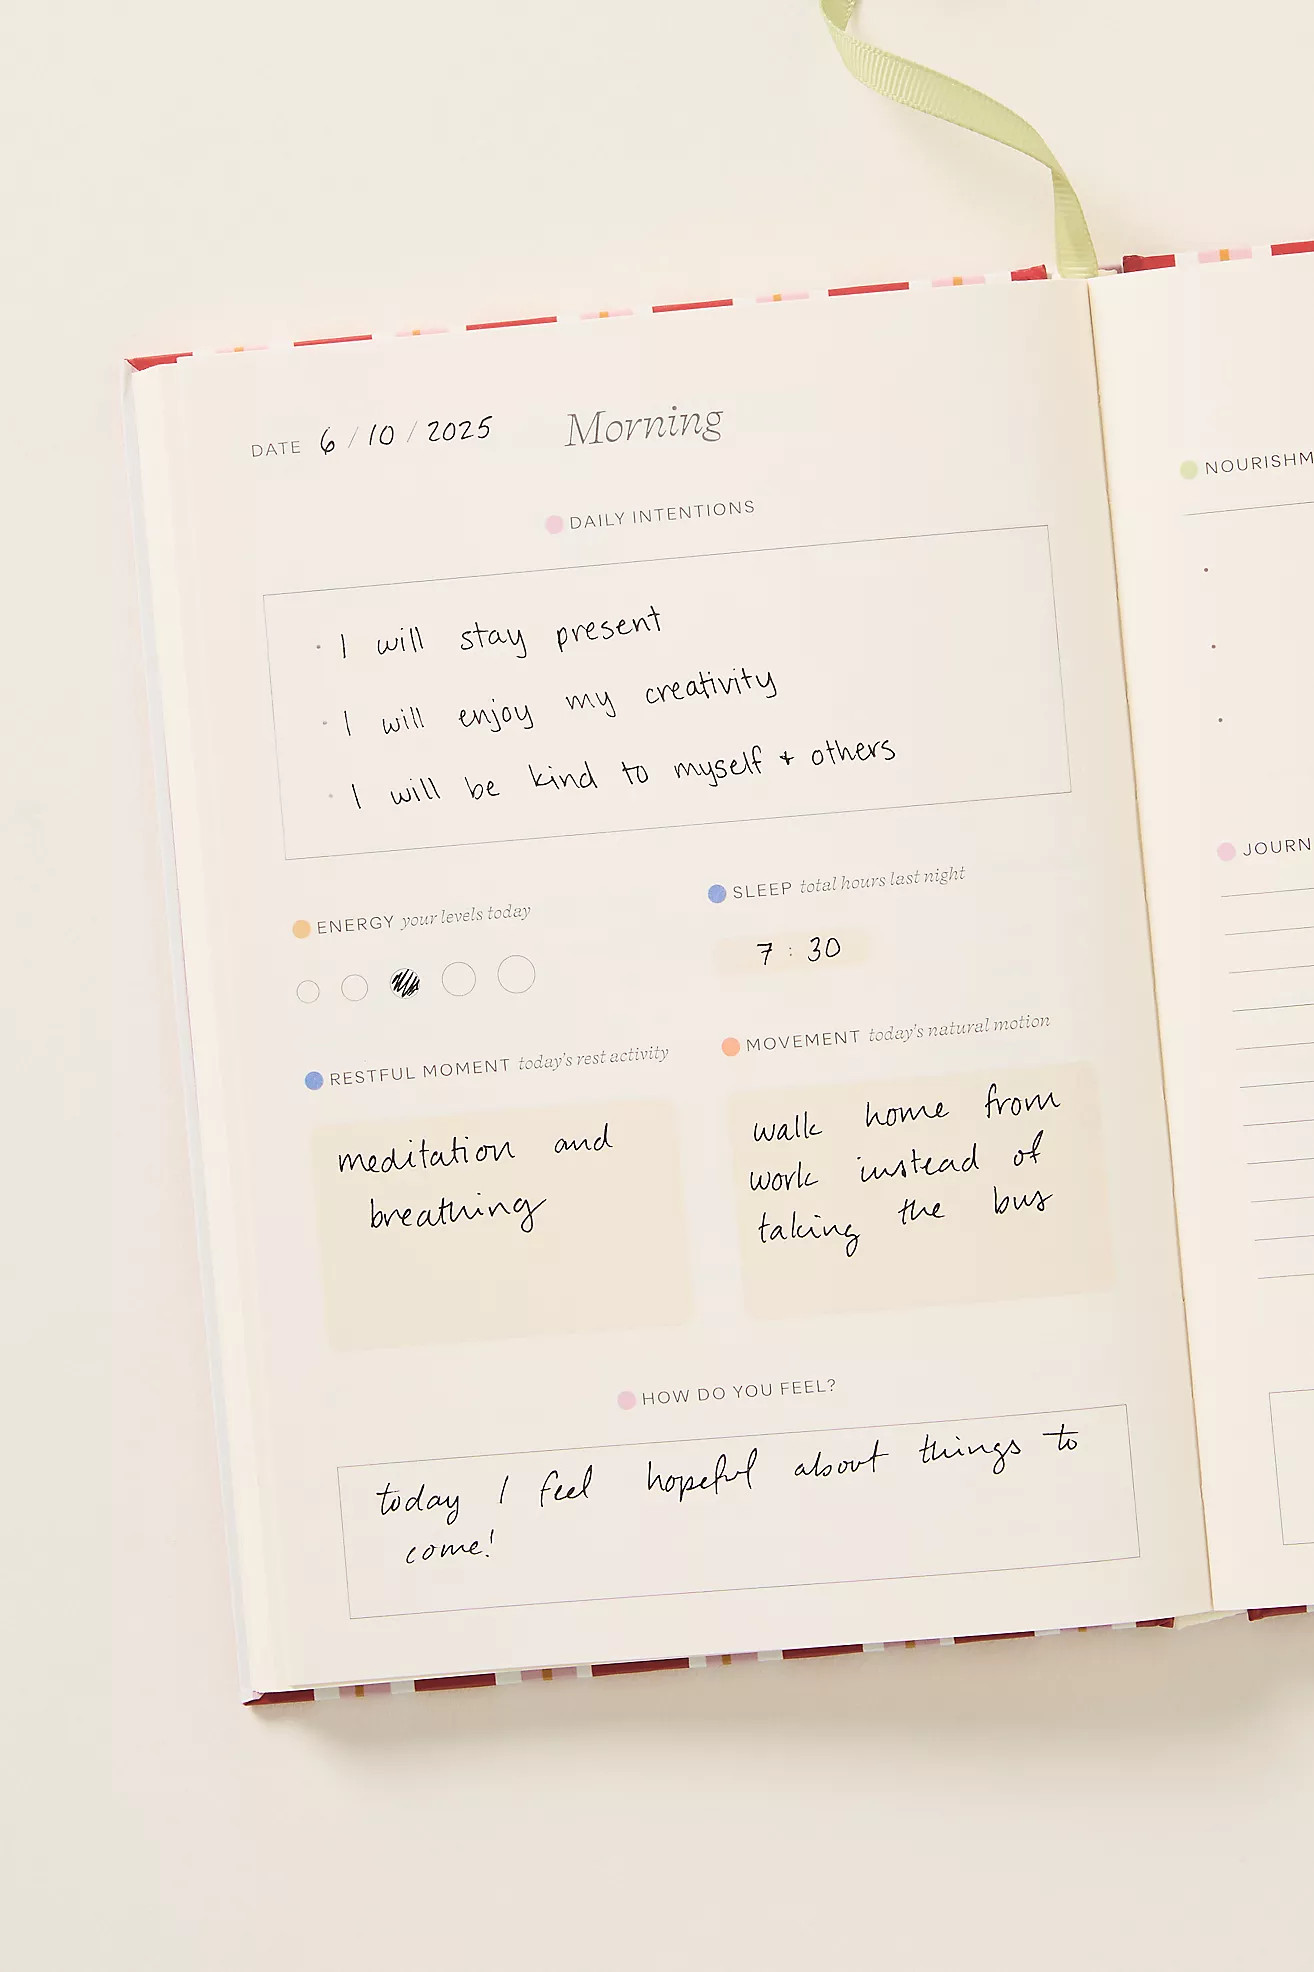 DATE 6 / 10 / 2025 Morning
DAILY INTENTIONS
· I will stay present
· I will enjoy my creativity
· I will be kind to myself + others
ENERGY your levels today
SLEEP total hours last night
7 : 30
RESTFUL MOMENT today's rest activity
meditation and
breathing
MOVEMENT today's natural motion
walk home from
work instead of
taking the bus
HOW DO YOU FEEL?
today I feel hopeful about things to
come!
NOURISHM
JOURN